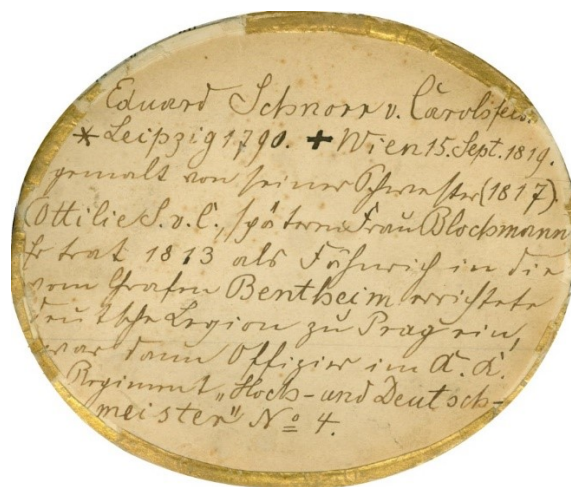 Eduard Schnorr v. Carolsfeld.
* Leipzig 1790. + Wien 15. Sept. 1819.
gemalt von seiner Schwester (1817)
Ottilie S. v. C., späteren Frau Blochmann
Er trat 1813 als Fähnrich in die
vom Grafen Bentheim errichtete
deutsche Legion zu Prag ein,
war dann Offizier im K. K.
Regiment „Hoch- und Deutsch-
meister" No 4.